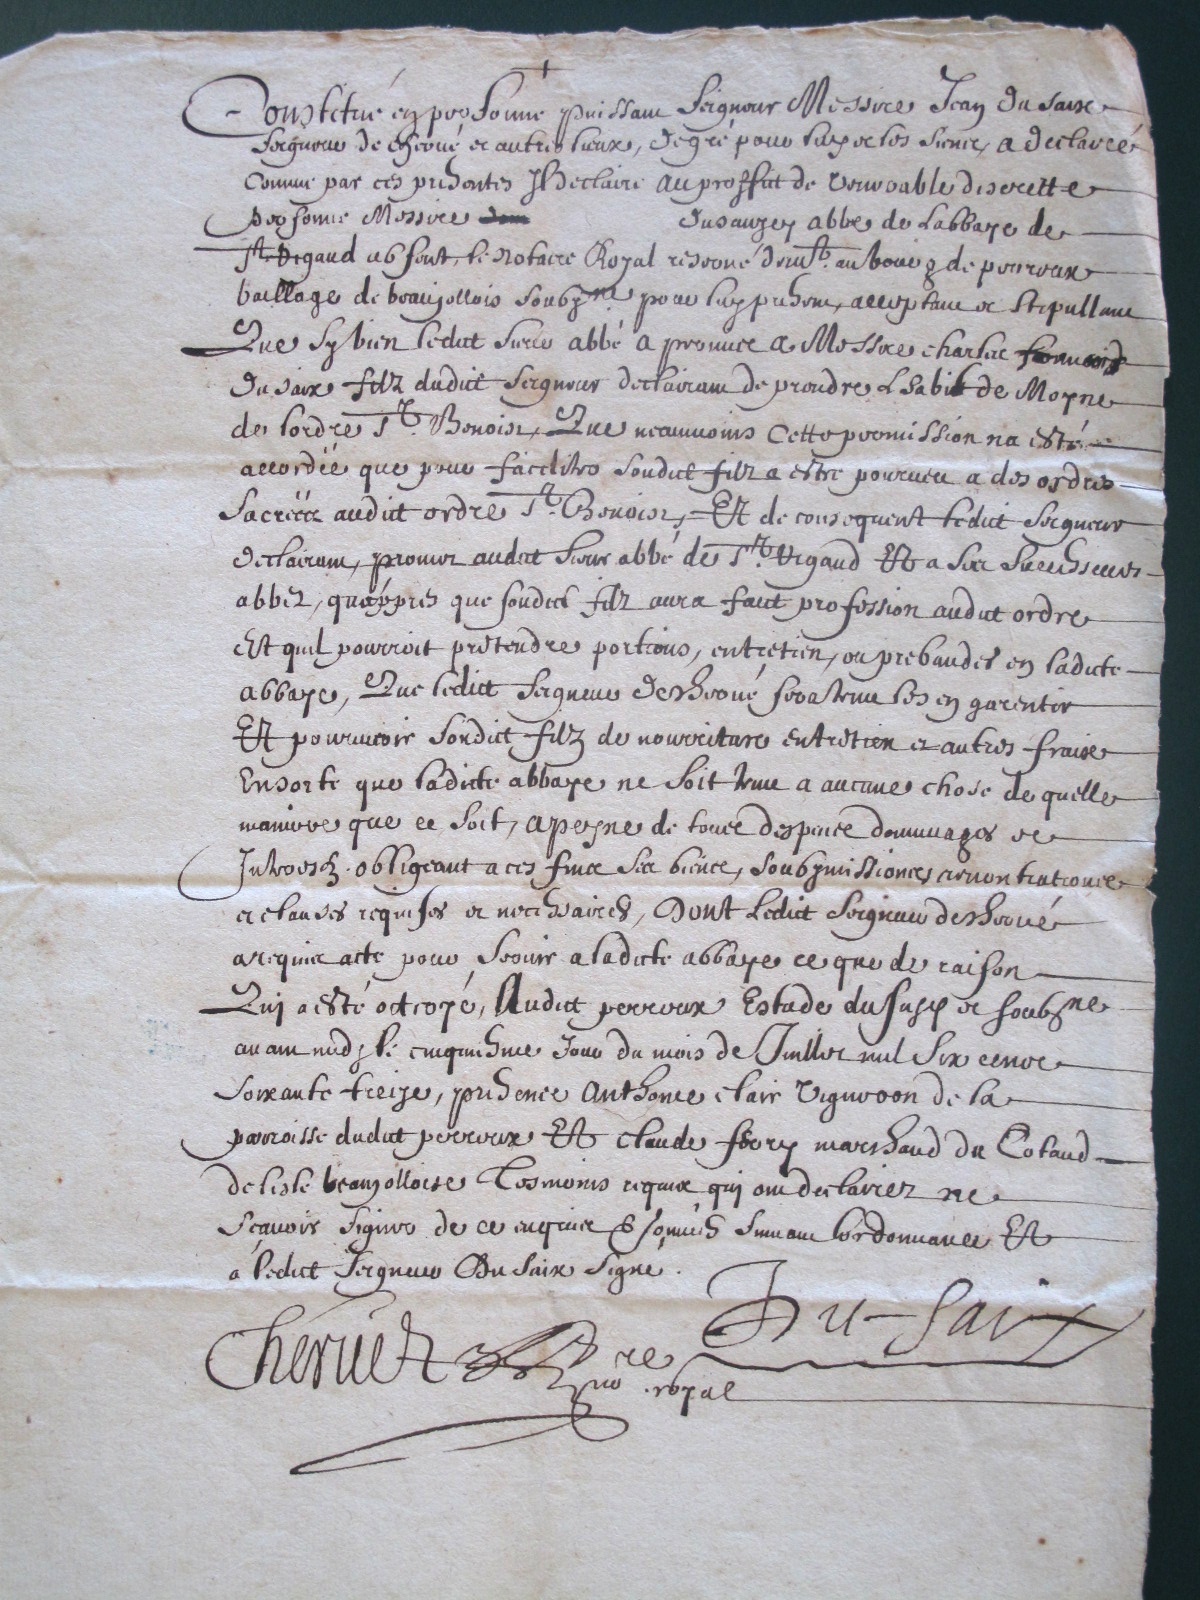 Constitué en personne puissant Seigneur Messire Jean du Saix
Seigneur de chervé et autres lieux, de gré pour luy et les siens, a declaré
Comme par ces presentes Il declaire au proffit de venerable discrette
personne Messire dusauzey abbe de Labbaye de
St Rigaud absent, le notaire Royal reservé au bourg de perreux
baillage de beaujollois soubzne pour luy present, acceptant et stipullant
Que sy bien ledict sieur abbé a promis a Messire charles
du saix filz dudict seigneur declairant de prendre Lhabit de Moyne
de lordre St Benoist, Que neanmoins Cette permission na esté
accordée que pour faciliter sondict filz a estre pourveu a des ordres
Sacrées audict ordre St Benoist, Et de consequent ledict Seigneur
declairant, promet audict sieur abbé de St Rigaud Et a ses successeurs
abbez, quappres que sondict filz aura faict profession audict ordre
Et quil pourroit pretendre portions, entretien, ou prebandes en ladicte
abbaye, Que ledict Seigneur de chervé sera tenu les en garentir
Et pourvoir sondict filz de nourriture entretien et autres fraix
Ensorte que ladicte abbaye ne soit tenue a aucune chose de quelle
maniere que ce soit, a peyne de tous despence dommages et
Interestz obligeant a ces fins ses biens, soubzmissions renontiationes
et clauses requises et necessaires, Dont Ledict Seigneur de chervé
a requis acte pour servir a ladicte abbaye ce que de raison
Qui a esté octroyé, Audict perreux Estude du susd et soubzne
avant midy le cinquiesme Jour du mois de Juillet mil six cents
soixante treize, presence Anthoine clair vigneron de la
parroisse dudict perreux Et claude marchand du Cotaud
de lisle beaujolloise Tesmoins requis qui ont declarez ne
sçavoir signer de ce enquis & sommés suivant lordonnance Et
a ledict Seigneur Du Saix signé.
Du Saix
Cheruet
nore royal